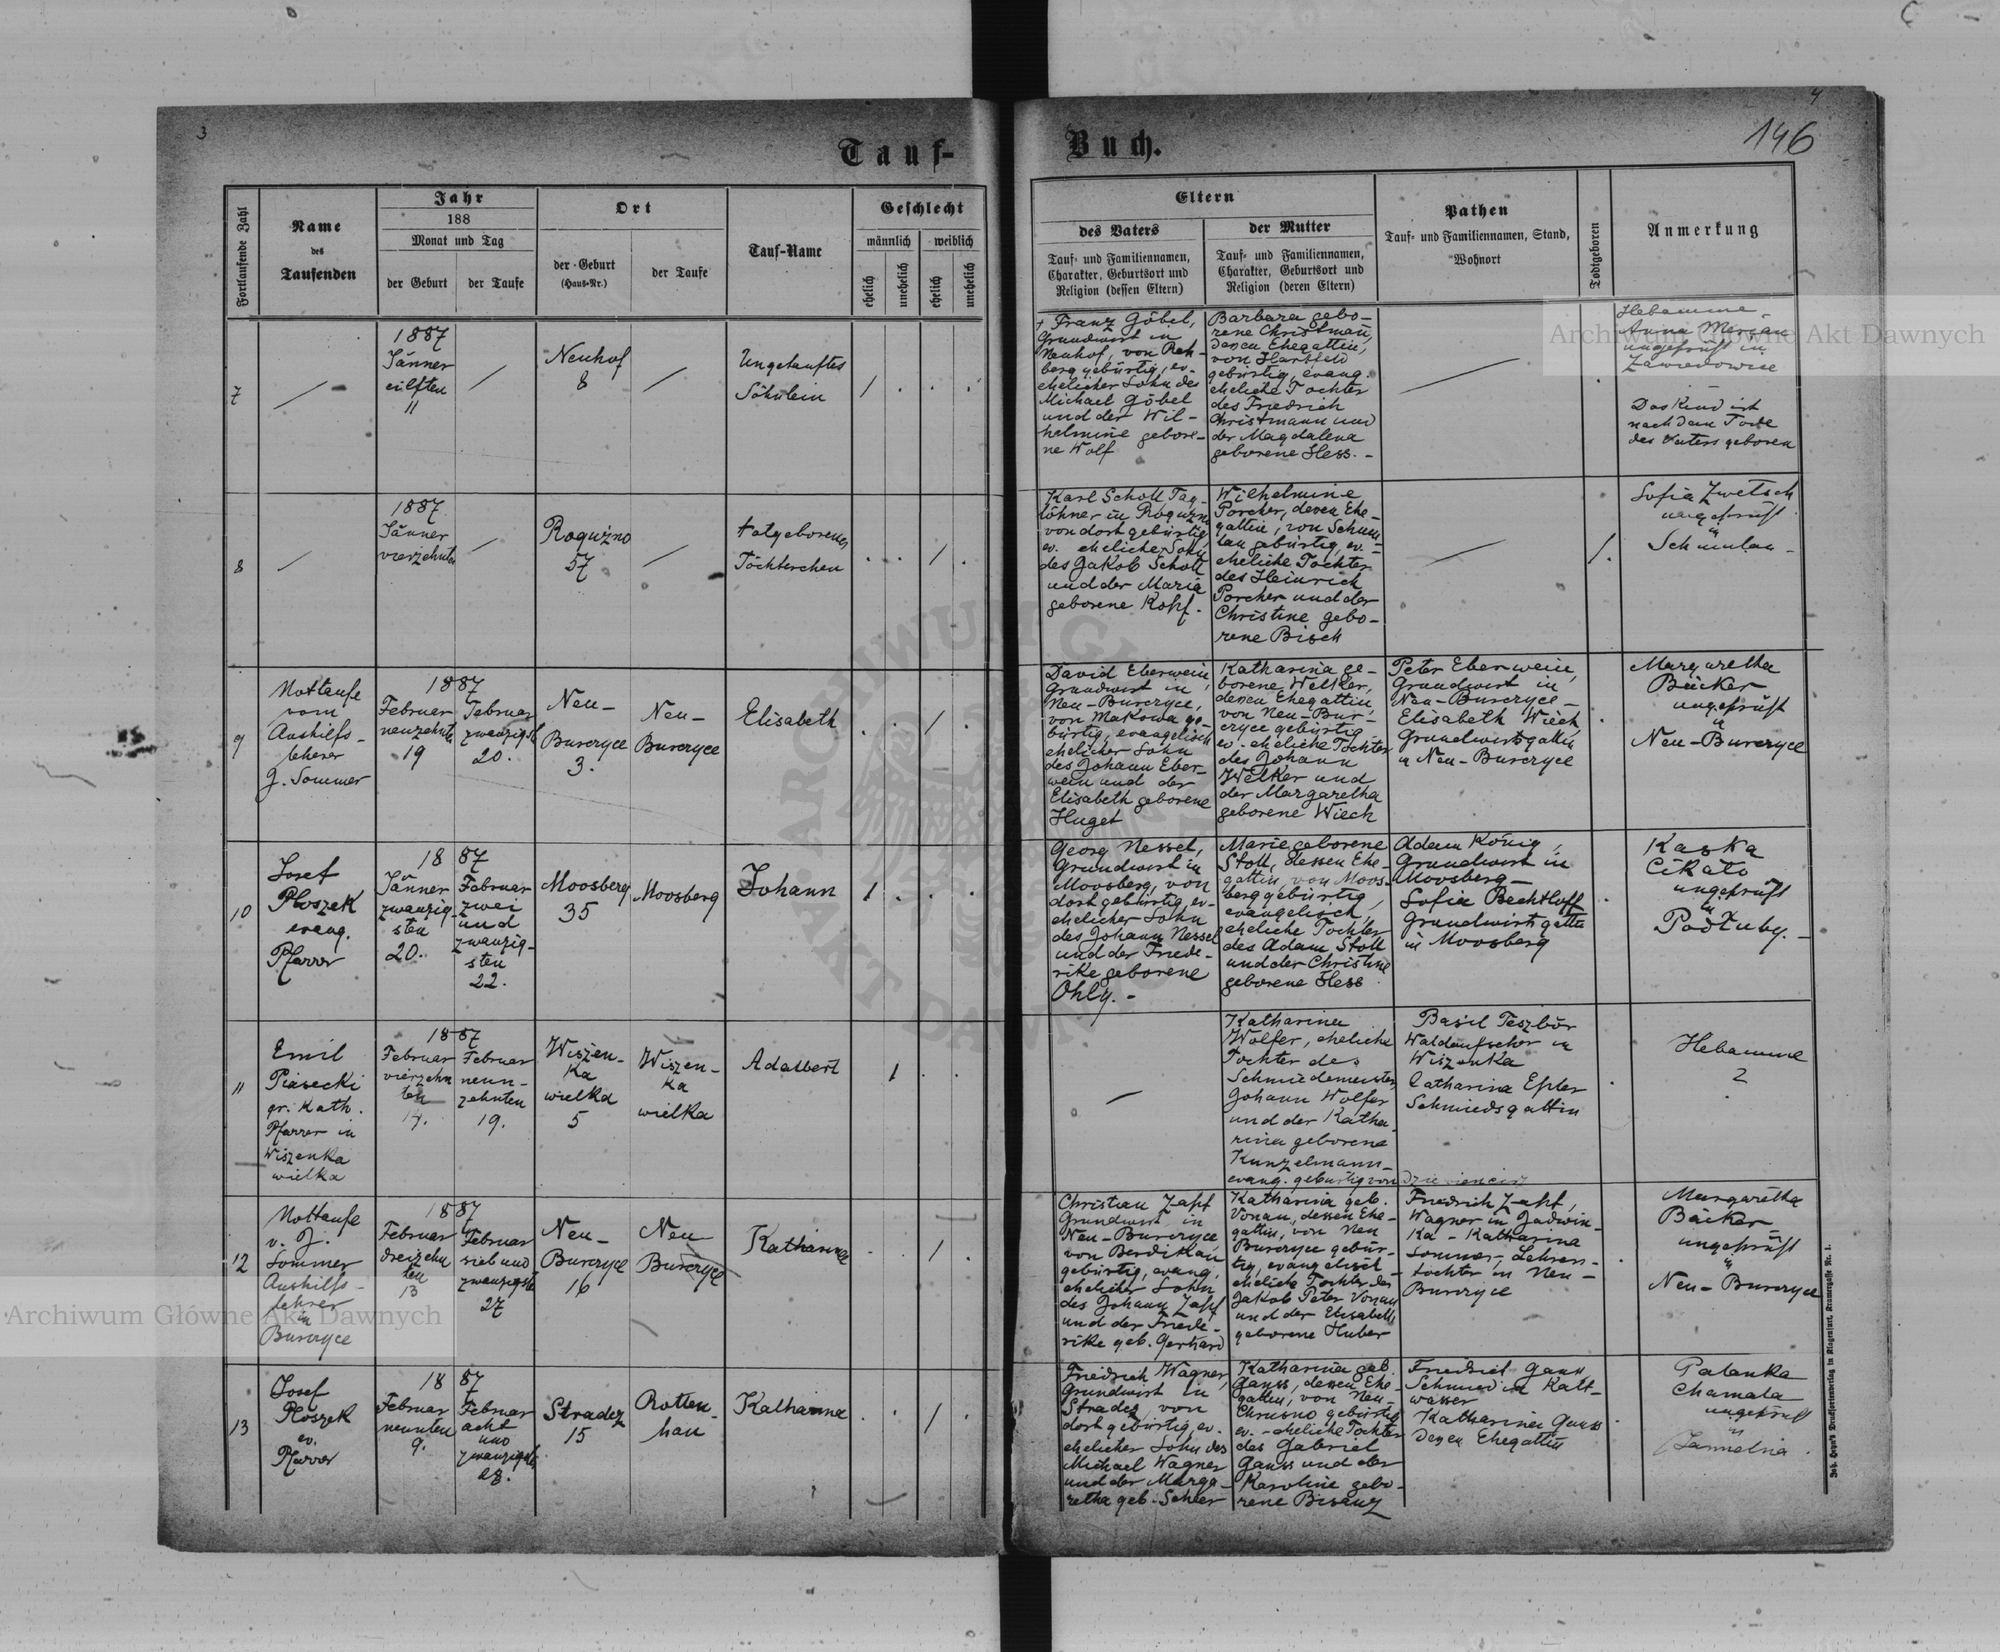 3
4
146
Tauf-Buch.
Fortlaufende Zahl
Name
des
Taufenden
Jahr
188
Monat und Tag
der Geburt
der Taufe
Ort
der Geburt
(Haus-Nr.)
der Taufe
Tauf-Name
Geschlecht
männlich
weiblich
ehelich
unehelich
ehelich
unehelich
Eltern
des Vaters
Tauf- und Familiennamen,
Charakter, Geburtsort und
Religion (dessen Eltern)
der Mutter
Tauf- und Familiennamen,
Charakter, Geburtsort und
Religion (deren Eltern)
Pathen
Tauf- und Familiennamen, Stand,
Wohnort
Todtgeboren
Anmerkung
7
1887
Jänner
eilften
11
Neuhof
8
Ungetauftes
Söhnlein
1
† Franz Göbel,
Grundwirt in
Neuhof, von Reh-
berg gebürtig, ev.
ehelicher Sohn des
Michael Göbel
und der Wil-
helmine gebore-
ne Wolf
Barbara gebo-
rene Christmann,
dessen Ehegattin,
von Hartfeld
gebürtig, evang.
eheliche Tochter
des Friedrich
Christmann und
der Magdalena
geborene Hess.-
Hebamme
Anna
ungeprüft in
Das Kind ist
nach dem Tode
des Vaters geboren
8
1887
Jänner
vierzehnten
Roguźno
57
totgeborenes
Töchterchen
1
Karl Scholl Tag-
löhner in Roguźno
von dort gebürtig,
ev. ehelicher Sohn
des Jakob Scholl
und der Maria
geborene Kopf.
Wilhelmine
Porcher, dessen Ehe-
gattin, von Schum-
lau gebürtig, ev.
eheliche Tochter
des Heinrich
Porcher und der
Christine gebo-
rene Bisch
1.
Sofia Zwetsch
ungeprüft
in
Schumlau-
9
Nottaufe
vom
Aushilfs-
lehrer
J. Sommer
1887
Februar
neunzehnten
19
Februar
zwanzigst
20.
Neu-
Burczyce
3.
Neu-
Burczyce
Elisabeth
1
David Eberwein,
Grundwirt in
Neu-Burczyce,
von Makowa ge-
bürtig, evangelisch
ehelicher Sohn
des Johann Eber-
wein und der
Elisabeth geborene
Huget
Katharina ge-
borene Welker,
dessen Ehegattin,
von Neu-Bur-
czyce gebürtig
ev. eheliche Tochter
des Johann
Welker und
der Margaretha
geborene Wiech
Peter Eberwein,
Grundwirt in
Neu-Burczyce-
Elisabeth Wiech
Grundwirtsgattin
in Neu-Burczyce
Margaretha
Bäcker
ungeprüft
in
Neu-Burczyce
10
Josef
Ploszek
evang.
Pfarrer
1887
Jänner
zwanzig-
sten
20.
Februar
zwei
und
zwanzig-
sten
22.
Moosberg
35
Moosberg
Johann
1
Georg Nessel,
Grundwirt in
Moosberg, von
dort gebürtig, ev.
ehelicher Sohn
des Johann Nessel
und der Friede-
rike geborene
Ohly.-
Marie geborene
Stoll, dessen Ehe-
gattin, von Moos-
berg gebürtig,
evangelisch,
eheliche Tochter
des Adam Stoll
und der Christine
geborene Hess
Adam König,
Grundwirt in
Moosberg-
Sofia Bechtloff
Grundwirtsgattin
in Moosberg
Kaska
ungeprüft
in
Podłuby.-
11
Emil
Piasecki
gr. Kath.
Pfarrer in
Wiszenka
wielka
1887
Februar
vierzehn
ten
14.
Februar
neun-
zehnten
19.
Wiszen-
ka
wielka
5
Wiszen-
ka
wielka
Adalbert
1
Katharina
Wolfer, eheliche
Tochter des
Schmiedemeisters
Johann Wolfer
und der Katha-
rina geborene
Kunzelmann-
evang. gebürtig von
Basil
in
Wiszenka
Catharina Epler
Schmiedsgattin
Hebamme
2
12
Nottaufe
v. J.
Sommer
Aushilfs-
lehrer
in
Burczyce
1887
Februar
dreizehn
ten
13
Februar
sieb und
zwanzigst
27
Neu-
Burczyce
16
Neu
Burczyce
Katharina
1
Christian Zapf
Grundwirt in
Neu-Burczyce
von Berdikau
gebürtig, evang.
ehelicher Sohn
des Johann Zapf
und der Friede-
rike geb. Gerhard
Katharina geb.
Vonau, dessen Ehe-
gattin, von Neu
Burczyce gebür-
tig, evangelisch
eheliche Tochter des
Jakob Peter Vonau
und der Elisabeth
geborene Huber
Friedrich Zapf,
Wagner in Jadwin-
ka - Katharina
Sommer, Lehrers-
tochter in Neu-
Burczyce
Margaretha
Bäcker
ungeprüft
in
Neu-Burczyce
13
Josef
Ploszek
ev.
Pfarrer
1887
Februar
neunten
9.
Februar
acht
und
zwanzigst
28.
Stradez
15
Rotten-
hau
Katharina
1
Friedrich Wagner,
Grundwirt in
Stradez, von
dort gebürtig, ev.
ehelicher Sohn des
Michael Wagner
und der Marga-
retha geb. Scherer
Katharina geb.
Gauss, dessen Ehe-
gattin, von Neu-
Chrusno gebürtig
ev. eheliche Tochter
des Gabriel
Gauss und der
Karoline gebo-
rene Bisanz
Friedrich Gauss
Schmied in Kalt-
wasser
Katharina Gauss
dessen Ehegattin
Palanka
Chamala
ungeprüft
in
Jamelnia.
Joh. Heyn's Drucksortenverlag in Klagenfurt, Kramergasse Nr. 1.
Archiwum Główne Akt Dawnych
Archiwum Główne Akt Dawnych
ARCHIWUM GŁÓWNE AKT DAWNYCH